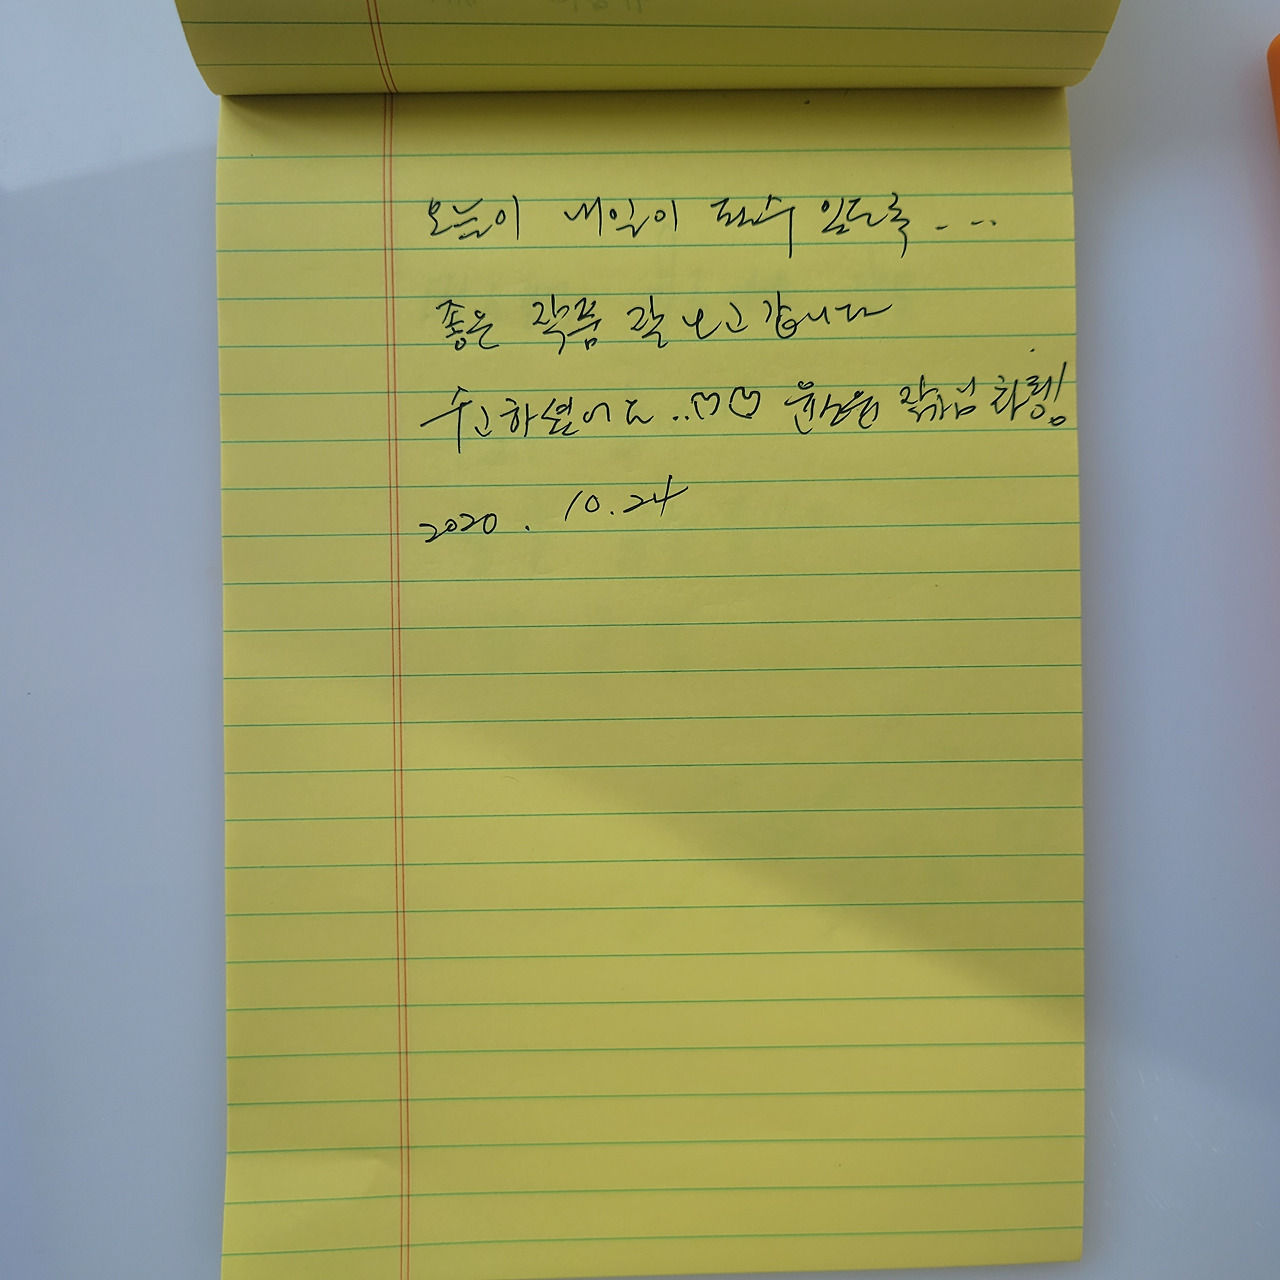 오늘이 내일이 될수 있도록...
좋은 작품 잘 보고 갑니다
수고하셨어요..♡♡ 작가님 화이팅!
2020. 10. 24